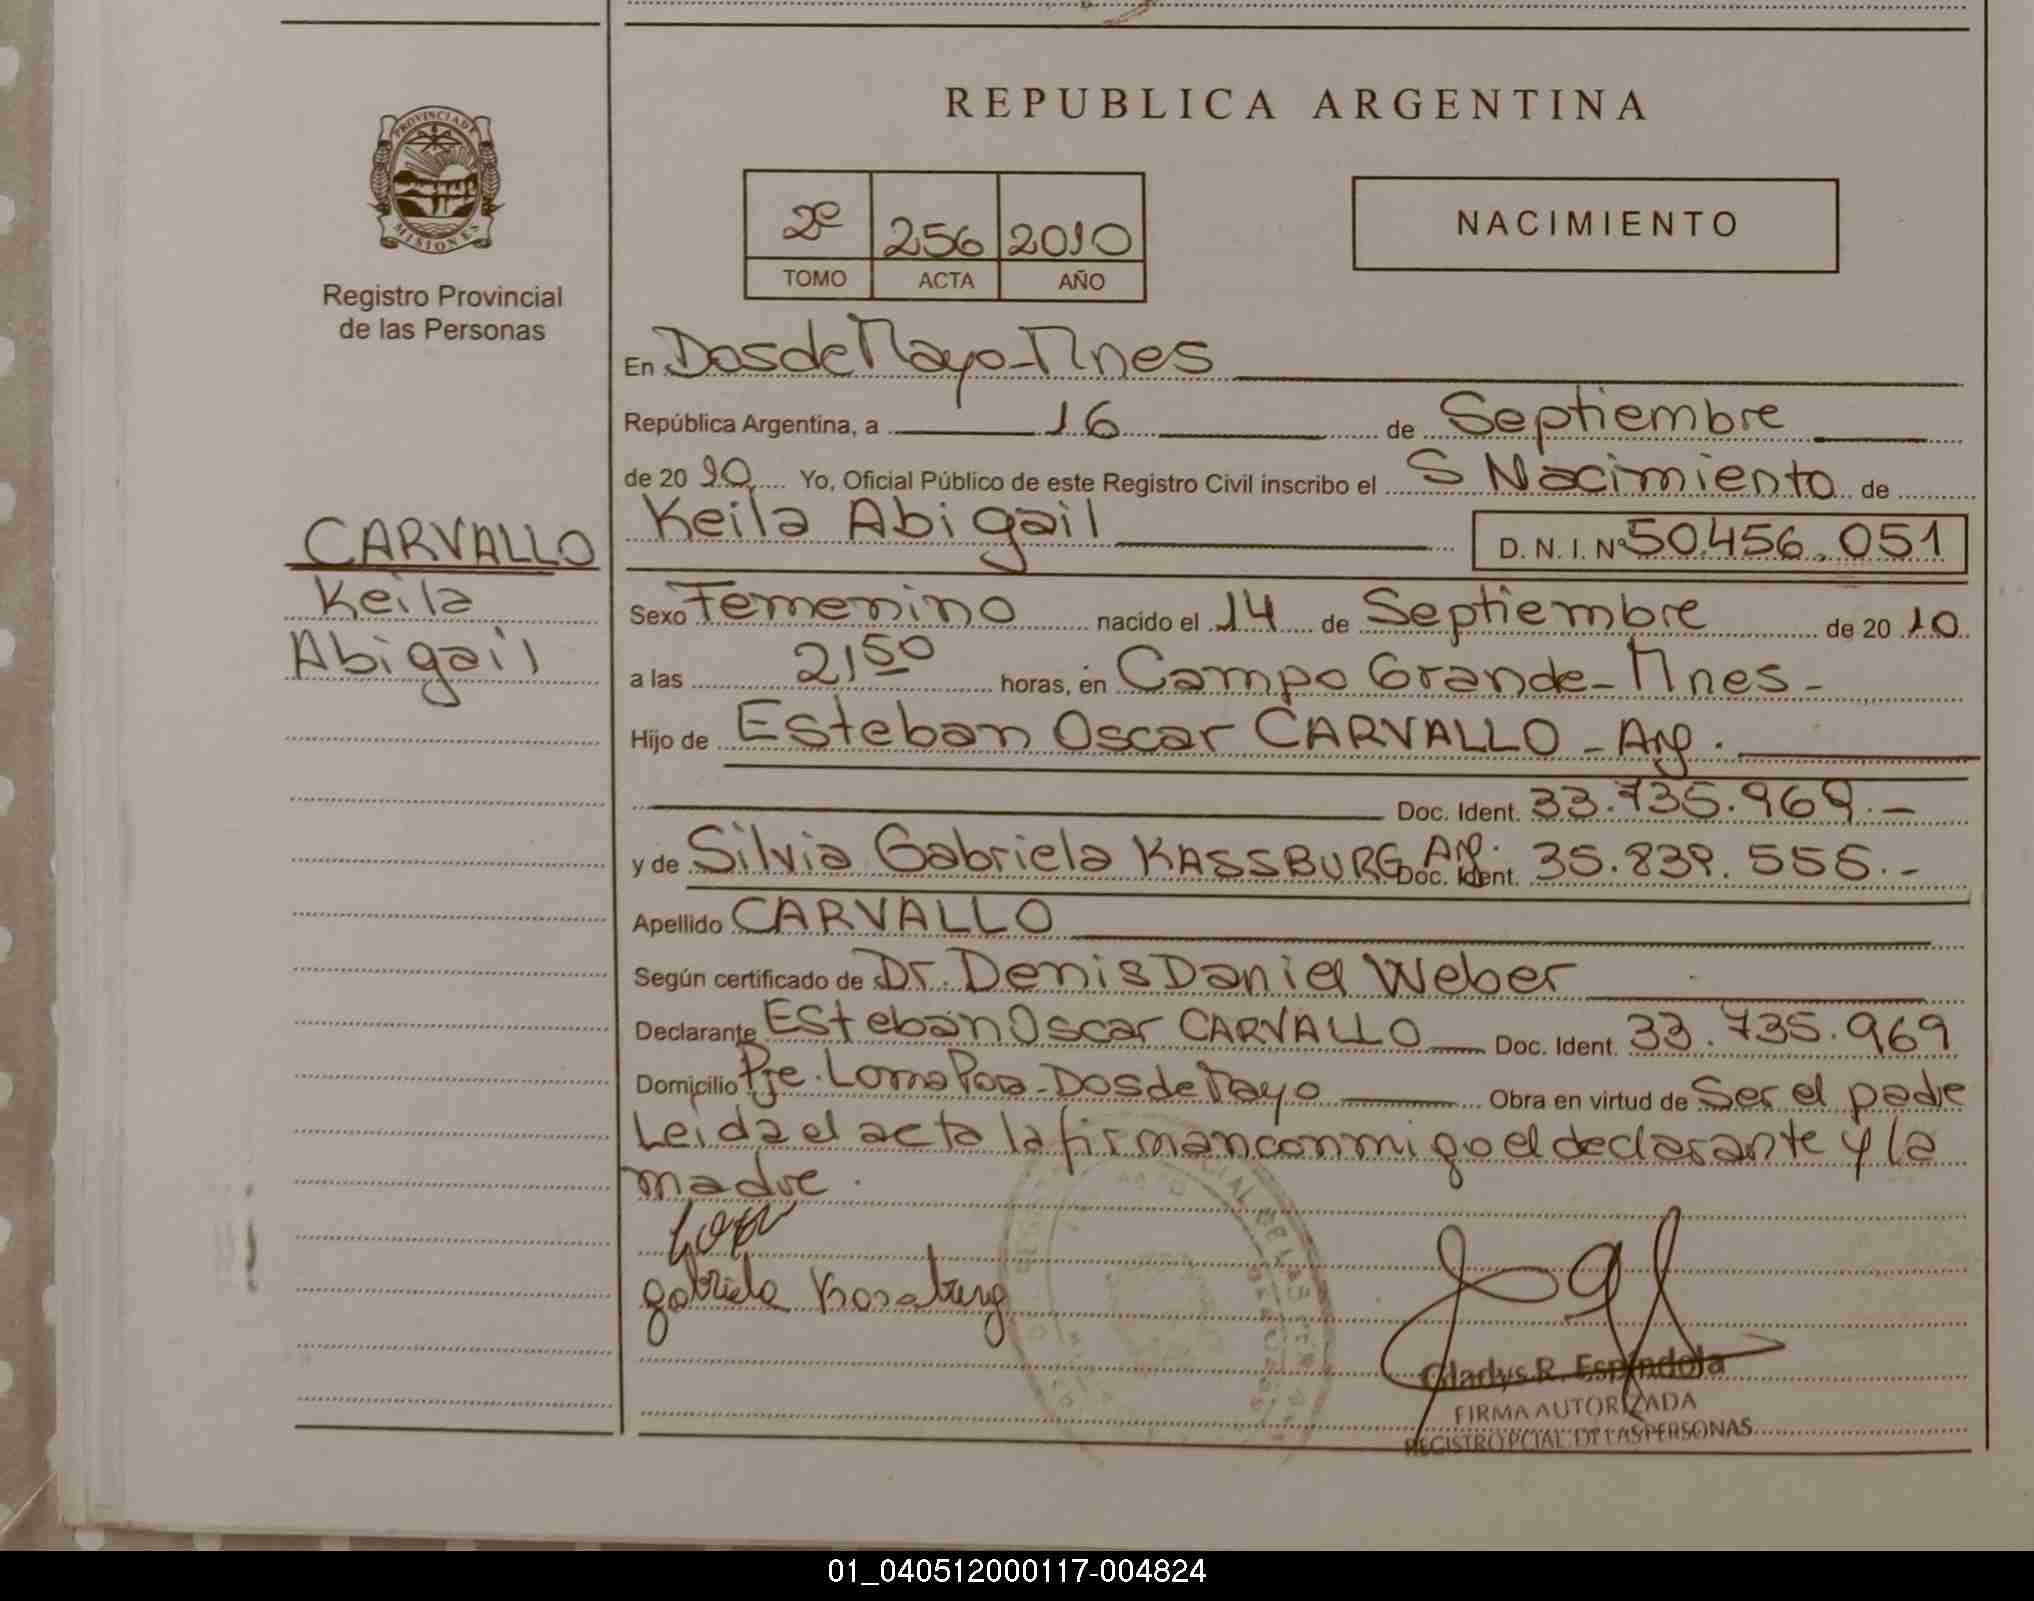 REPUBLICA ARGENTINA
PROVINCIA DE
MISIONES
Registro Provincial
de las Personas
2º 256 2010
TOMO ACTA AÑO
NACIMIENTO
En Dos de Mayo - Mnes
República Argentina, a 16 de Septiembre
de 2010 Yo, Oficial Público de este Registro Civil inscribo el S Nacimiento de
Keila Abigail D. N. I. Nº 50.456.051
CARVALLO
Keila
Abigail
Sexo Femenino nacido el 14 de Septiembre de 2010
a las 21,50 horas, en Campo Grande - Mnes -
Hijo de Esteban Oscar CARVALLO - Arg.
Doc. Ident. 33.735.969.-
y de Silvia Gabriela KASSBURG Arg. Doc. Ident. 35.839.555.-
Apellido CARVALLO
Según certificado de Dr. Denis Daniel Weber
Declarante Esteban Oscar CARVALLO Doc. Ident. 33.735.969
Domicilio Pje. Loma Pora - Dos de Mayo Obra en virtud de Ser el padre
Leida el acta la firman conmigo el declarante y la
madre.
gabriela
Gladys R. Espíndola
FIRMA AUTORIZADA
REGISTRO PCIAL. DE LAS PERSONAS
01_040512000117-004824